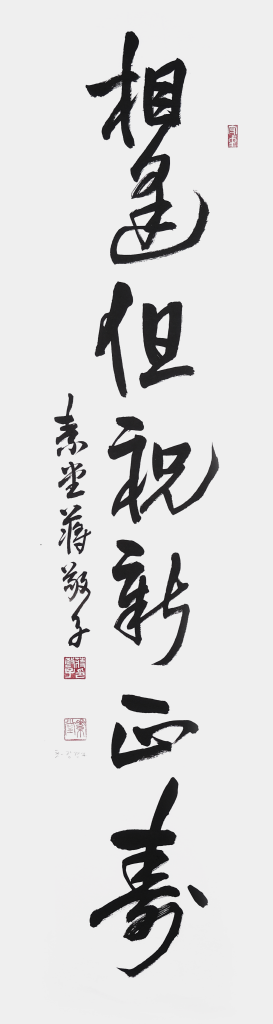 相逢但祝新正壽
素堂蔣敬子